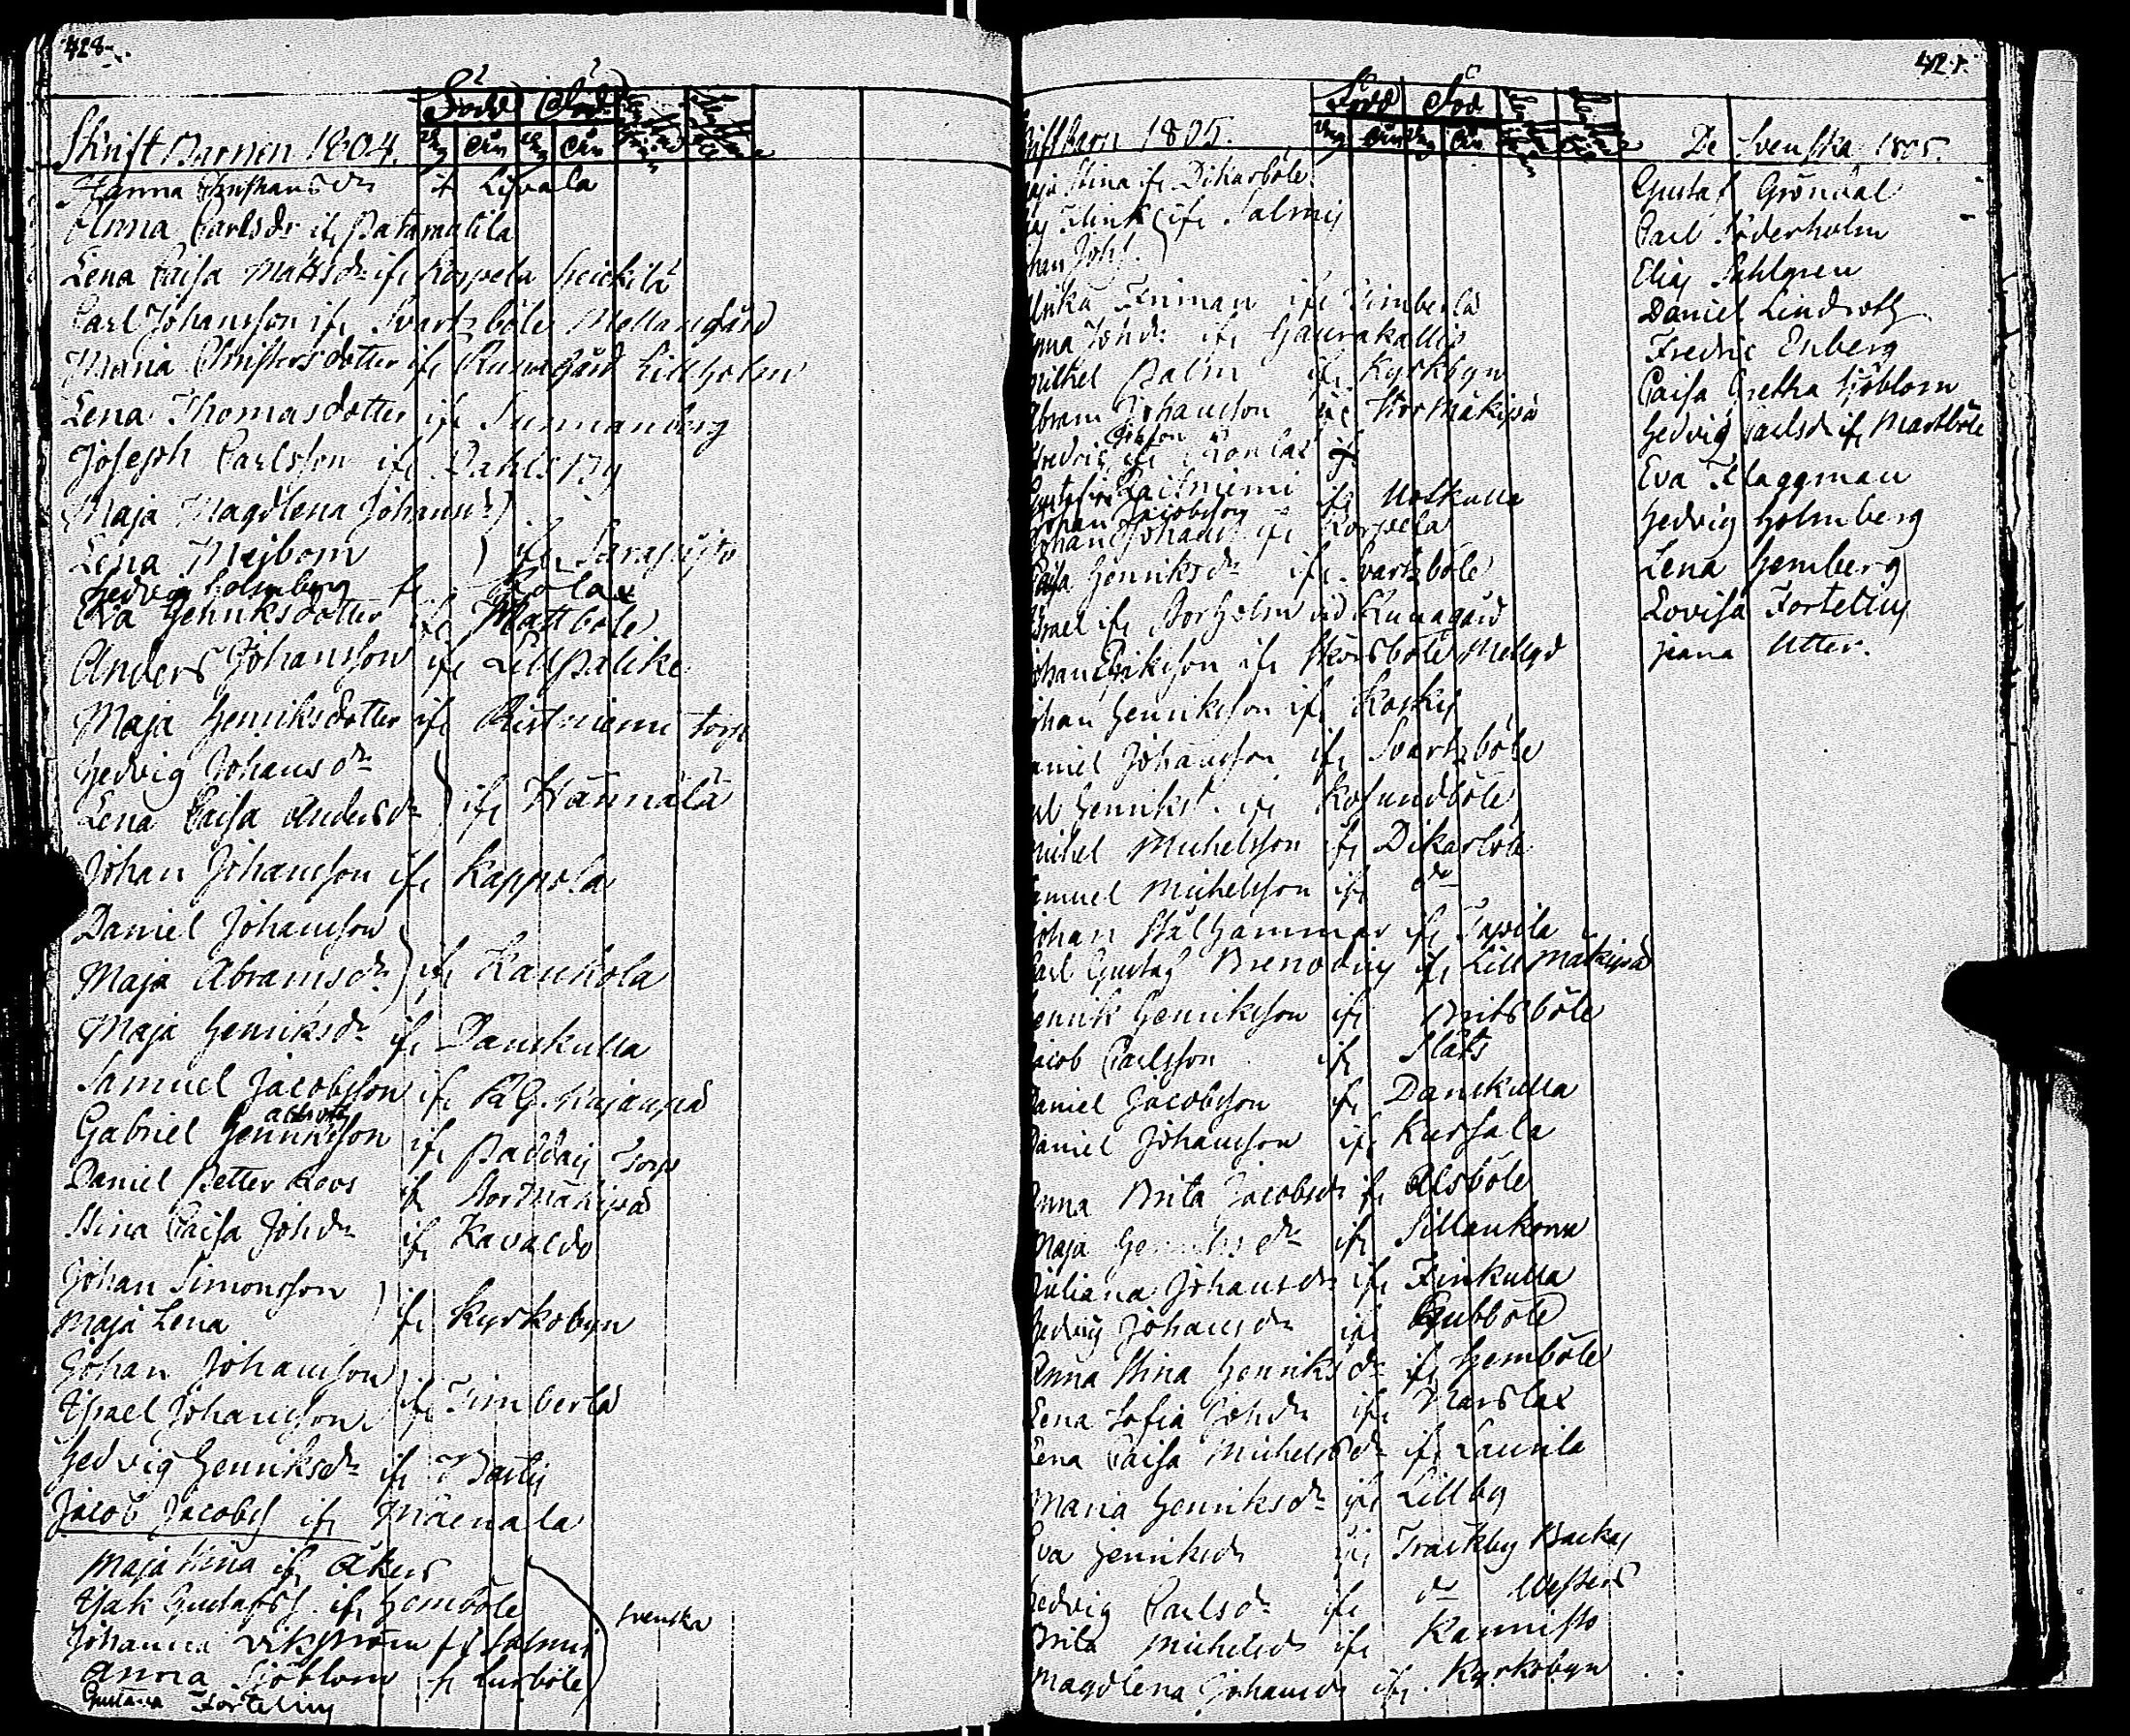 428
Skrift Barnen 1804.
Hanna Christiansdr if Lipala
Anna Carlsdr if Patamalila
Lena Caisa Mattsdr if Korpela Heickilä
Carl Johansson if Svartsböle Mellangård
Maria Christersdotter if Kunnsgård Lillholm
Lena Thomasdotter if Sunnanberg
Joseph Carlsson if Dahls By
Maja Magdlena Johansdr
Lena Meibom if Sarapisto
Hedvig Holmberg fr Kölax
Eva Henriksdotter if Mattböle
Anders Johansson if Lillpalike
Maja Henriksdotter if Ristniemi torp
Hedvig Johansdr
Lena Caisa Andersdr if Hännälä
Johan Johansson if Kappola
Daniel Johansson
Maja Abramsdr if Kaukola
Maja Henriksdr if Danskulla
Samuel Jacobsson if PG. Kajanpä
Gabriel Henriksson if Paddais Torp
Daniel Petter Roos if Stor Mäkipä
Stina Caisa Johdr if Kavaldo
Johan Simonsson
Maja Lena if Kyrkobyn
Johan Johansson
Israel Johansson if Timberla
Hedvig Henriksdr if Bastis
Jacob Jacobss if Mäenala
Maja Stina if Åkers
Isak Gustafss. if Hemböle
Johanna Vikström if Salmis
svenska
Anna Sjöblom if Lurböle
Gustava Fortelius
Barn 1805.
Stina if Dikarböle
Flink if Salmis
Johs.
Ulrika Finman if Timberla
Anna Johdr if Haurakallio
Mikel Palm if Kyrkbyn
Abram Johansson if Stor Mäkipä
Johsson
Fredric if Rönlax
Gustafva Raitniemi if Uotkulla
Johan Jacobsson
Johan Johanss if Korpela
Caisa Henriksdr if Svartsböle
Israel if Storholm vid Kunnsgård
Johan Eriksson if Skorsböle Mellgd
Johan Henriksson if Koskis
Daniel Johansson if Svartsböle
Henrikss. if Kosundböle
Michel Michelsson if Dikarböle
Samuel Michelsson if do
Johan Stålhammar if Tavila
Carl Gustaf Brenodius if Lill Mäkipä
Henrik Henriksson if Britsböle
Jacob Carlsson if Släts
Daniel Jacobsson if Danskulla
Daniel Johansson if Kursala
Anna Brita Jacobsdr if Alsböle
Maja Henriksdr if Sillankorva
Juliana Johansdr if Finkulla
Hedvig Johansdr if Gubböle
Anna Stina Henriksdr if Hemböle
Lena Sofia Johdr if Narslax
Lena Caisa Michelsdr if Laurila
Maria Henriksdr if Lillby
Eva Henriksdr if Träskby Backas
Hedvig Carlsdr if do Westers
Brita Michelsdr if Kannisto
Magdlena Johansdr if Kyrkobyn
De Svenska 1805.
Gustaf Gröndal
Carl Söderholm
Elias Sahlgren
Daniel Lindroth
Fredric Enberg
Caisa Gretha Sjöblom
Hedvig Carlsdr if Martböle
Eva Flaggman
Hedvig Holmberg
Lena Hemberg
Lovisa Fortelius
Utter.